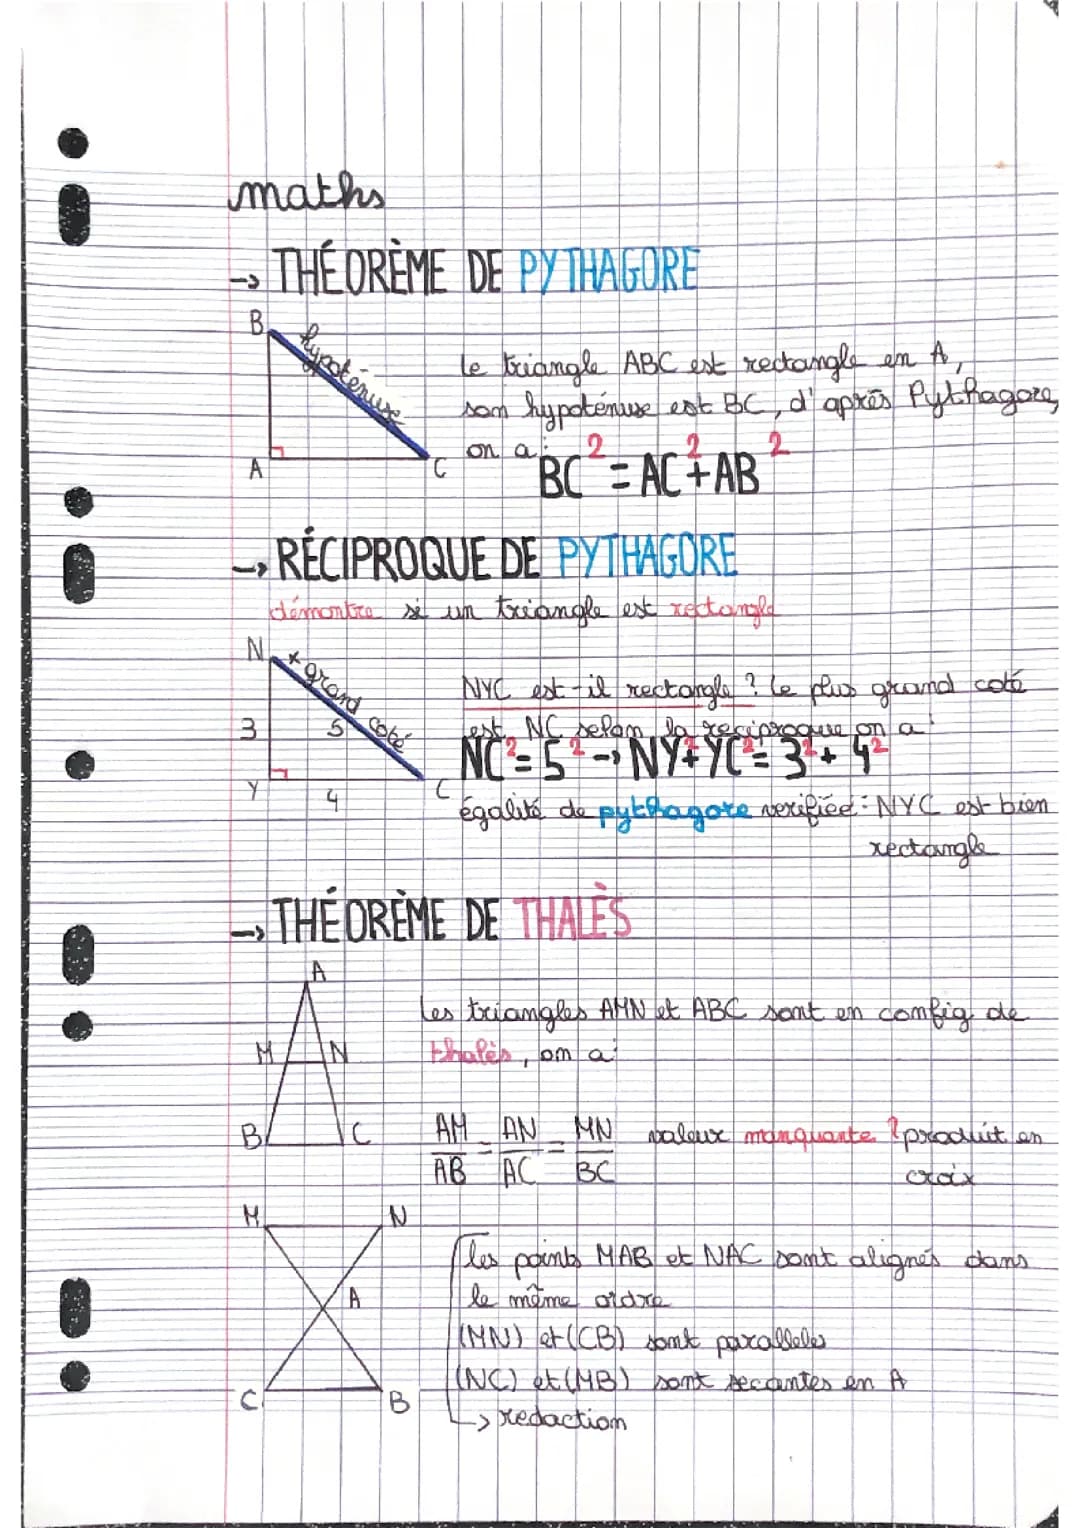 maths
→ THÉORÈME DE PYTHAGORE
B
hypoténuse
A
C
le triangle ABC est rectangle en A,
son hypoténuse est BC, d'après Pythagore,
on a:
BC² = AC² + AB²
→ RÉCIPROQUE DE PYTHAGORE
démontre si un triangle est rectangle
N
+ grand coté
3
5
Y
4
C
NYC est-il rectangle ? le plus grand coté
est NC selon la reciproque on a:
NC² = 5² → NY² + YC² = 3² + 4²
égalité de pythagore verifiée: NYC est bien
rectangle
→ THÉORÈME DE THALÈS
A
M
N
B
C
Les triangles AMN et ABC sont en config de
thalès, on a:
AM/AB = AN/AC = MN/BC valeur manquante ? produit en
croix
M
N
A
C
B
les points MAB et NAC sont alignés dans
le même ordre
(MN) et (CB) sont paralleles
(NC) et (MB) sont secantes en A
→ redaction